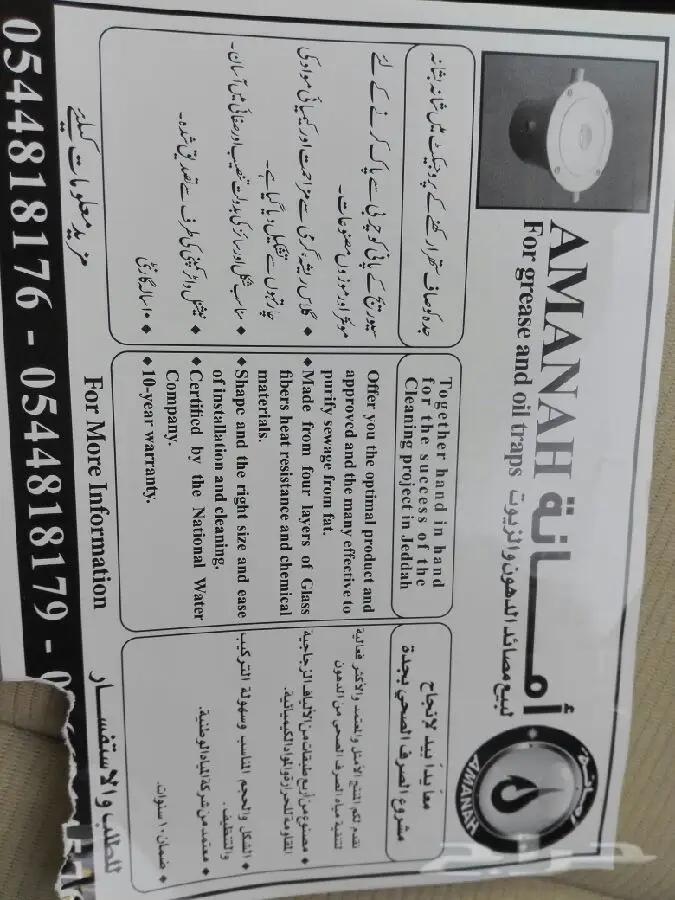 AMANAH أمـــانة
For grease and oil traps لبيع مصائد الدهون والزيوت
AMANAH
جدہ کو صاف ستھرا رکھنے کے پروجیکٹ میں شانہ بشانہ
سیوریج کے پانی کو چربی سے پاک کرنے کے لئے
موثر اور موزوں مصنوعات۔
Together hand in hand
for the success of the
Cleaning project in Jeddah
Offer you the optimal product and
approved and the many effective to
purify sewage from fat.
♦ Made from four layers of Glass
fibers heat resistance and chemical
materials.
♦ Shape and the right size and ease
of installation and cleaning.
♦ Certified by the National Water
Company.
♦ 10-year warranty.
معا يدا بيد لانجاح
مشروع الصرف الصحي بجدة
نقدم لكم المنتج الأمثل والمعتمد والأكثر فعالية
لتنقية مياه الصرف الصحي من الدهون
♦ مصنوع من أربع طبقات من الألياف الزجاجية
المقاومة للحرارة والمواد الكيميائية.
♦ الشكل والحجم المناسب وسهولة التركيب
والتنظيف.
♦ معتمد من شركة المياه الوطنية.
♦ ضمان ١٠ سنوات.
مزید معلومات کیلئے
For More Information
للطلب والاستفسار
0544818176 - 0544818179 - 0
حراج